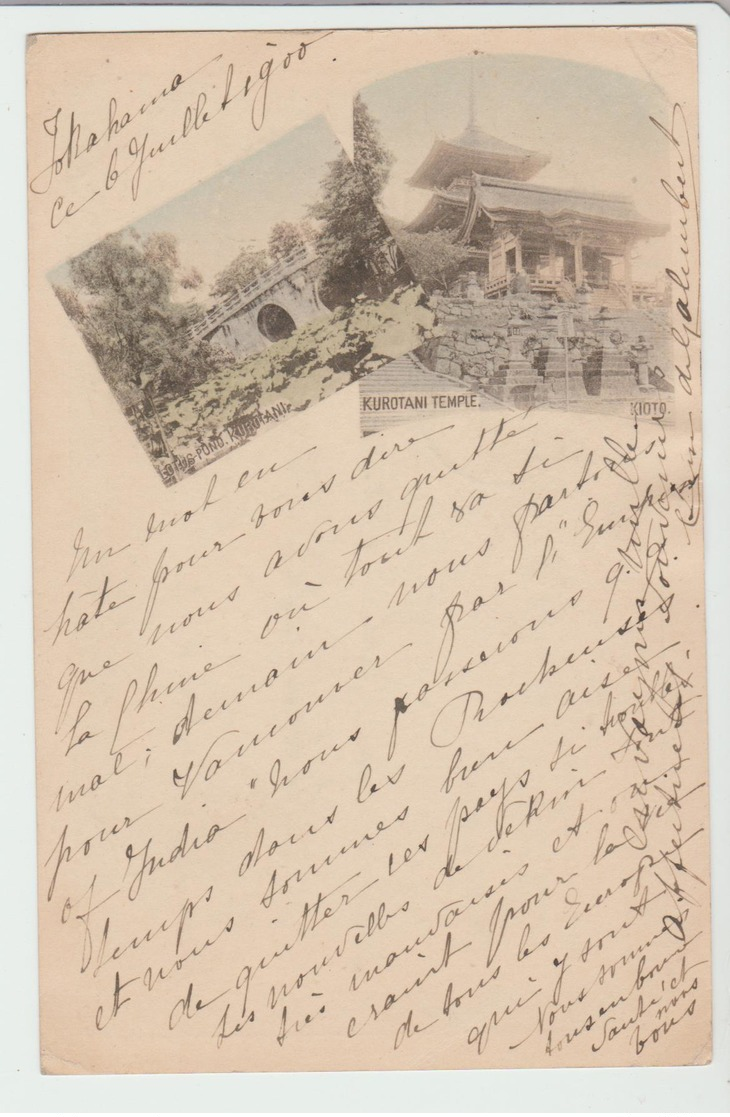 Yokahama
ce 6 Juillet 1900
LOTUS-POND. KUROTANI.
KUROTANI TEMPLE.
KIOTO.
Un mot en
hâte pour vous dire
que nous avons quitté
la Chine où tout va si
mal; demain nous partons
pour Vancouver par l'"Empress
of India" nous passerons quelle
temps dans les Rocheuses
et nous sommes bien aises
de quitter ces pays si troublés.
Les nouvelles de Pékin sont
très mauvaises et on
craint pour la vie
de tous les Européens
qui y sont
Nous sommes
tous en bonne
santé, et
vous
Affectueux
souvenirs
de Galembert